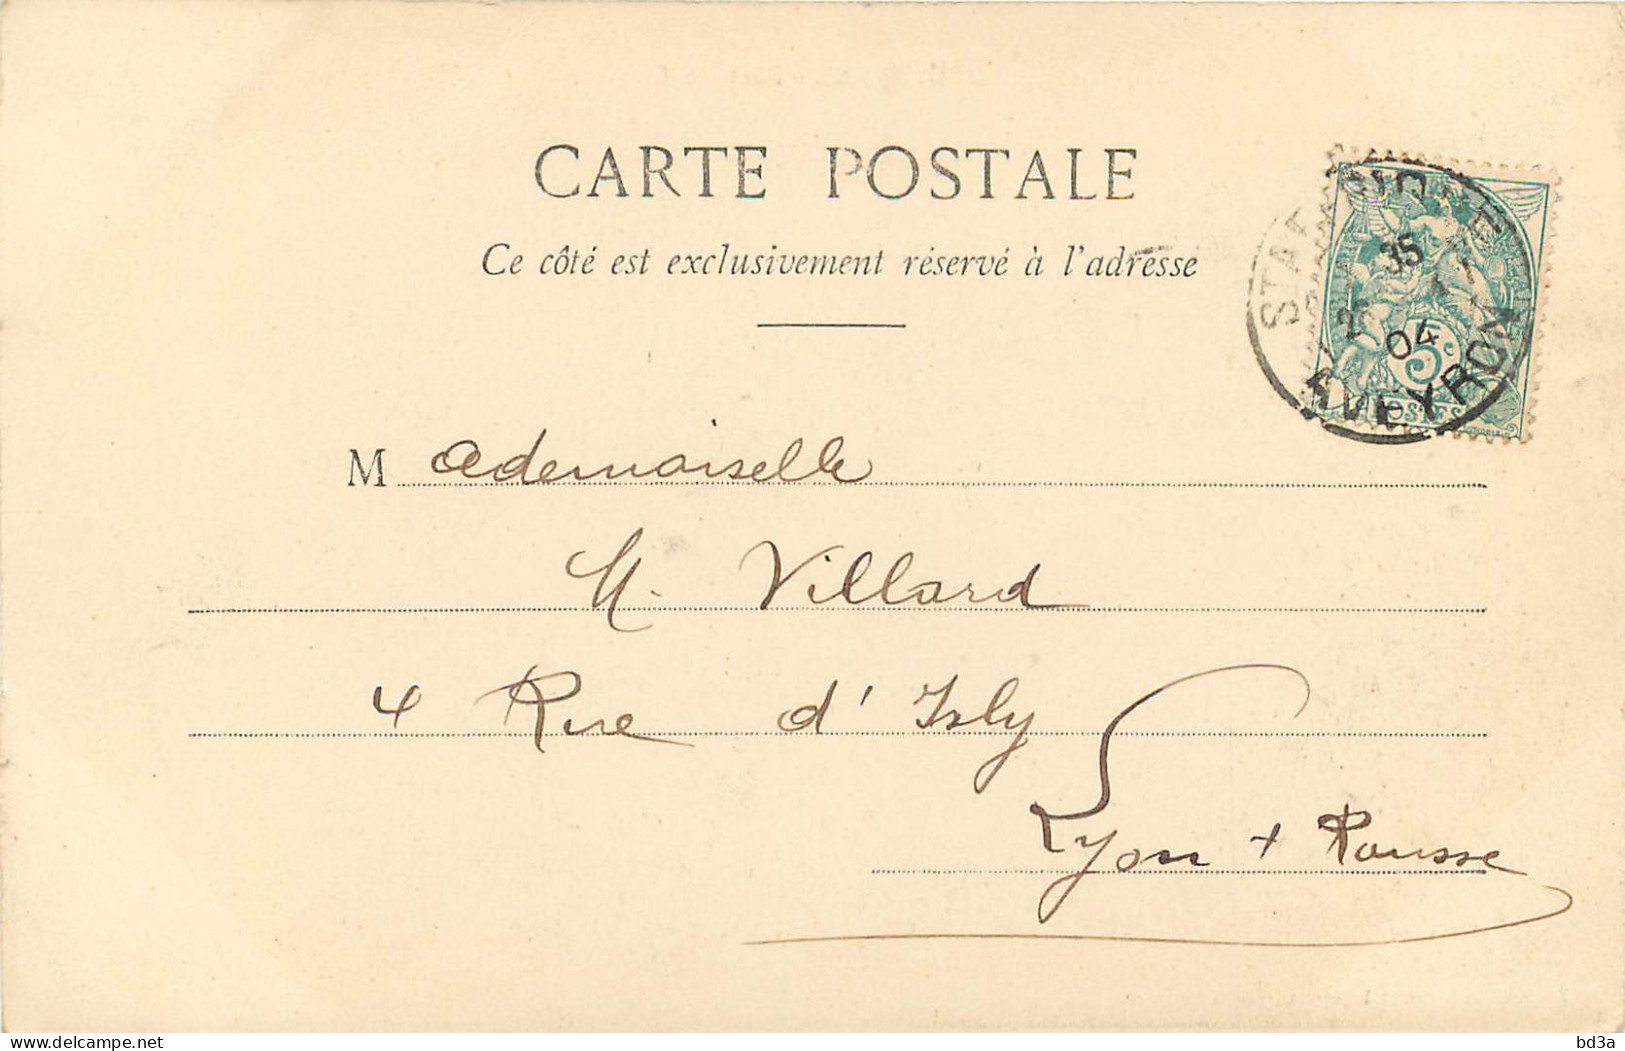 CARTE POSTALE
Ce côté est exclusivement réservé à l'adresse
35
04
AVEYRON
5c
POSTES
M ademoiselle
M. Villard
4 Rue d'Isly
Lyon + Rousse
www.delcampe.net
bd3a